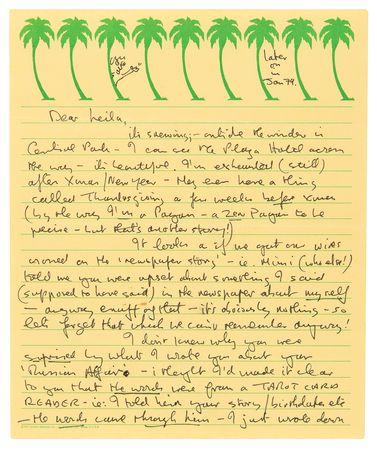 Later
on in
Jan 79.
Dear Leila,
its snowing, - outside the window is
Central Park - I can see the Plaza Hotel across
the way - its beautiful. I'm exhausted (still)
after Xmas/New Year - they even have a thing
called Thanksgiving a few weeks before Xmas
(by the way I'm a Pagan - a ZEN Pagan to be
precise - but that's another story!)
It looks as if we got our wires
crossed on the 'newspaper story' - i.e. Mimi (who else!)
told me you were upset about something I said
(supposed to have said) in the newspaper about myself
- anyway enuff of that - it's obviously nothing - so
let's forget that which we can't remember anyway!
I don't know why you were
surprised by what I wrote you about your
'Russian Affair' - i thought I'd made it clear
to you that the words were from a TAROT CARD
READER - i.e: I told him your story/birthdates etc
- the words came through him - I just wrote down